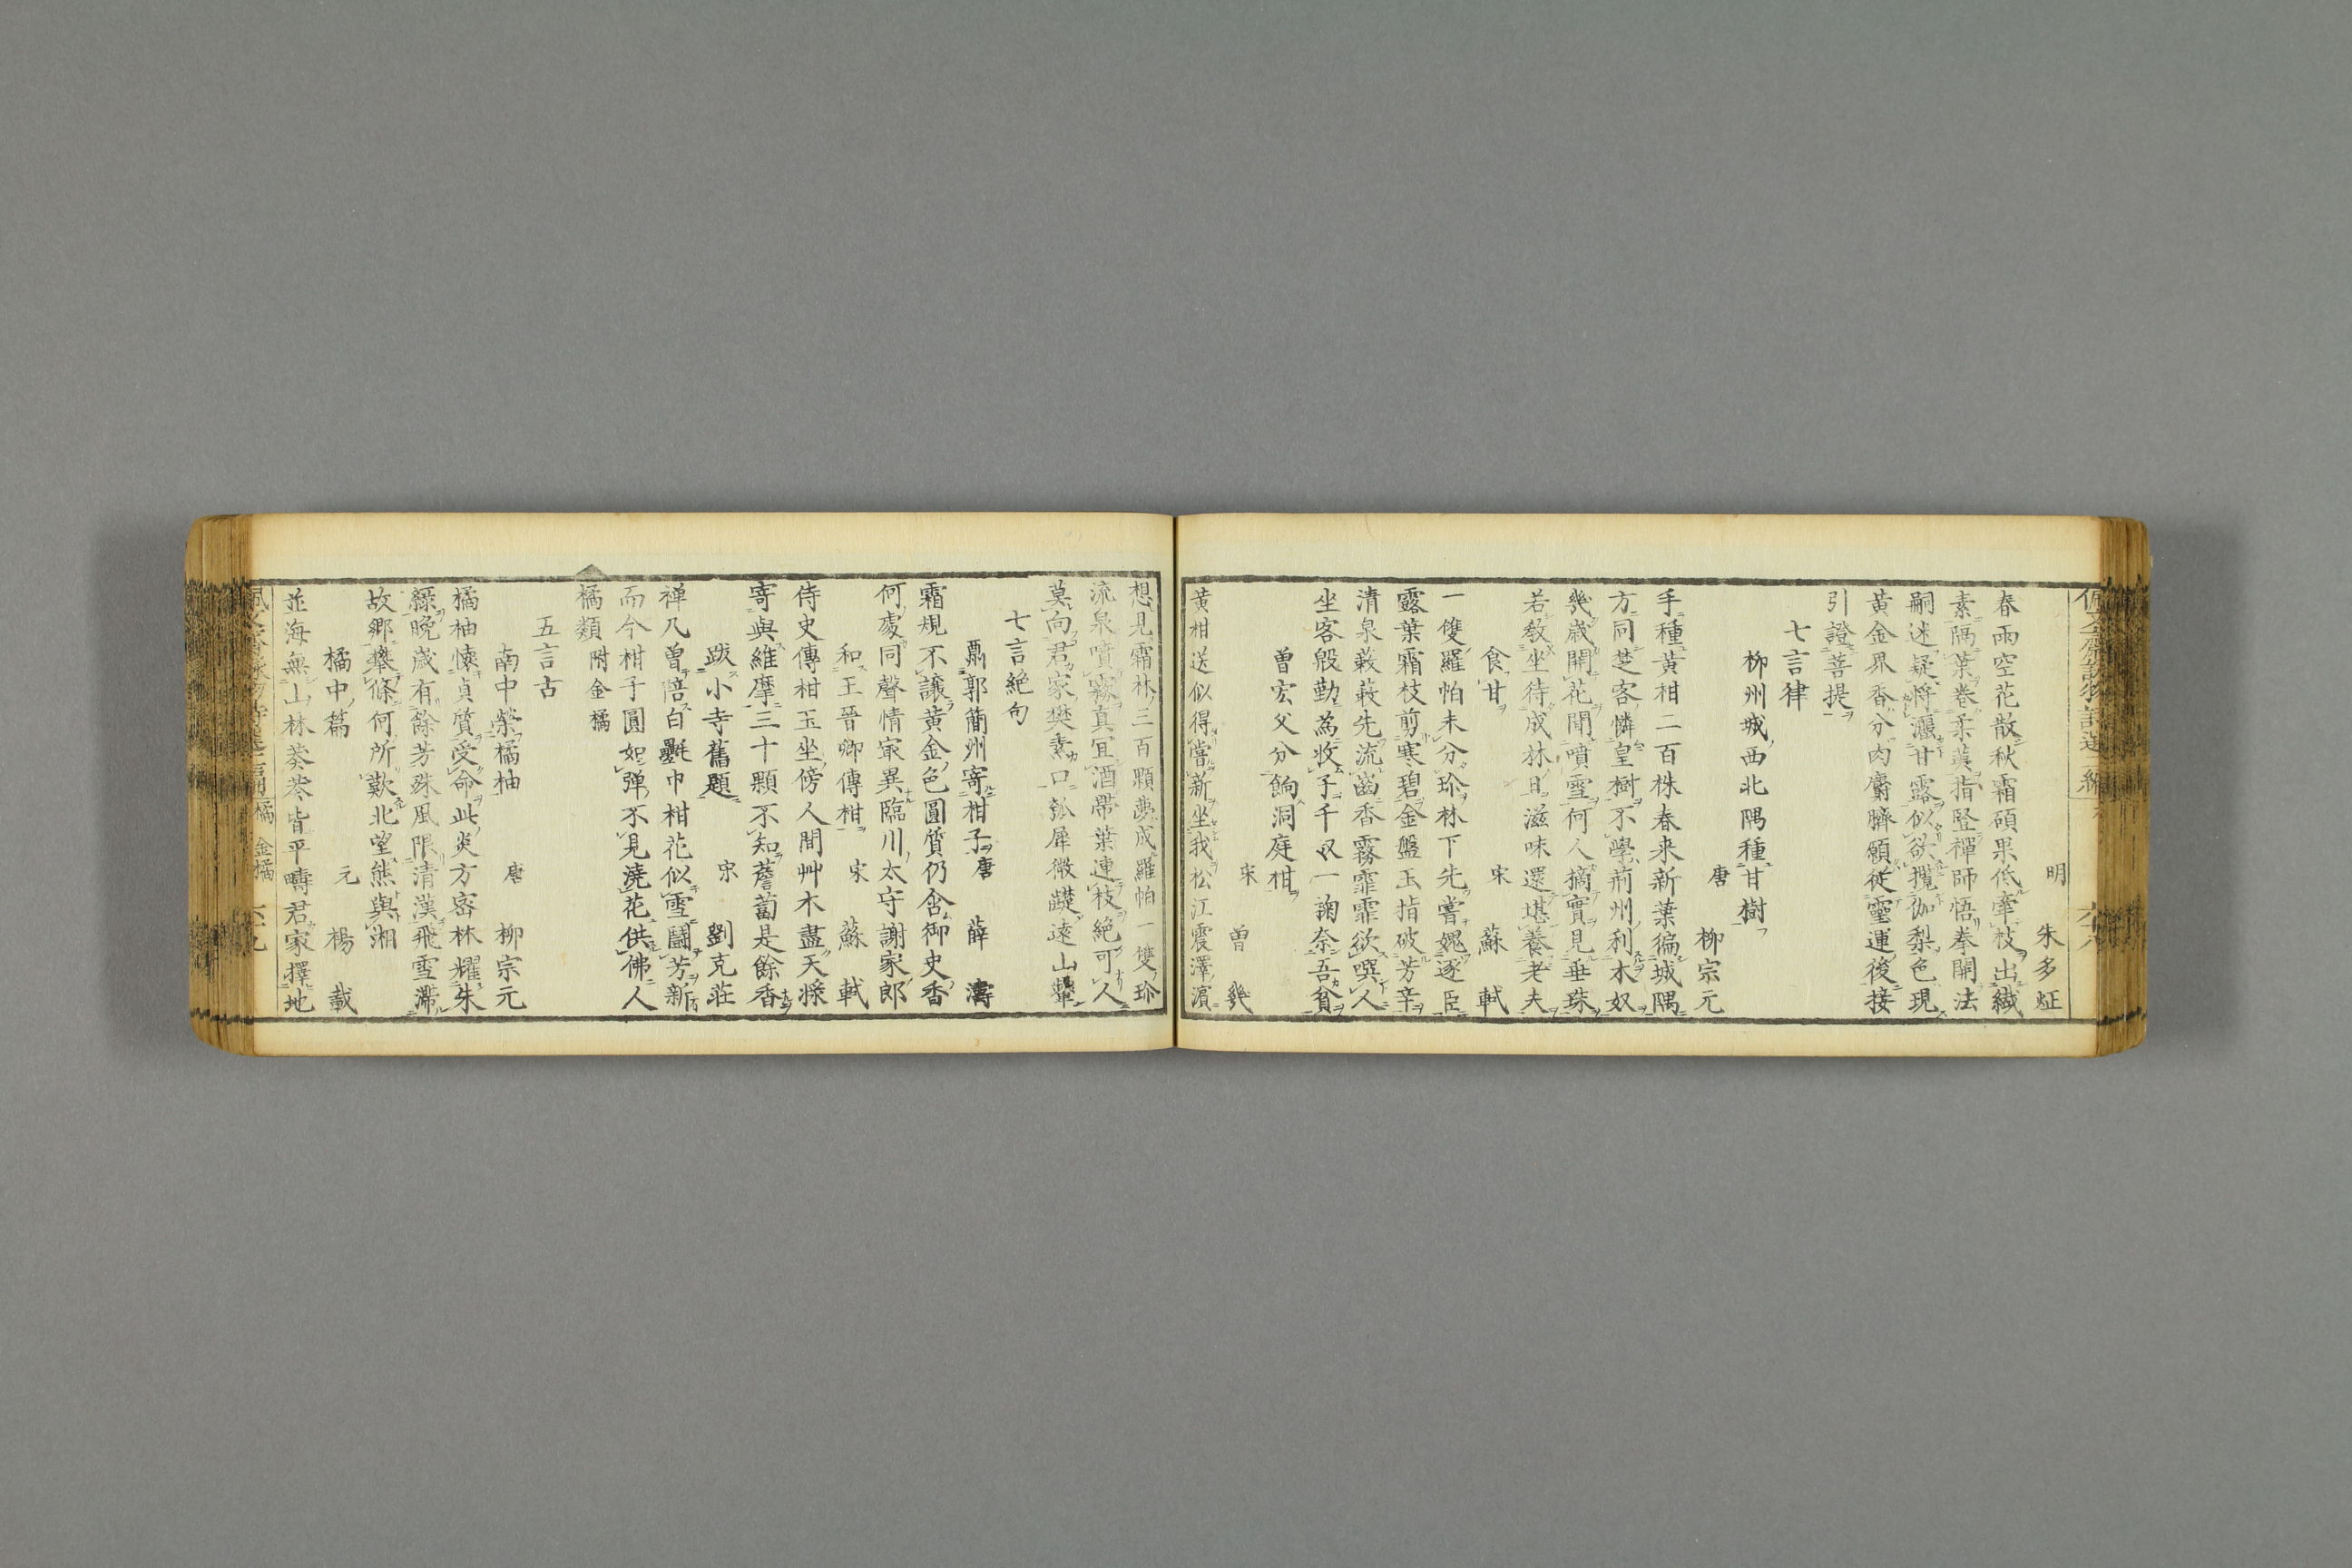 明 朱多炡
春雨空花散秋霜碩果低牽枝出緘
素隔葉卷柔荑指竪禪師悟拳開法
嗣迷疑將灑甘露似欲攬伽梨色現
黃金界香分肉麝臍願從靈運後接
引證菩提
七言律
柳州城西北隅種甘樹
唐 柳宗元
手種黃柑二百株春来新葉徧城隅
方同楚客憐皇樹不學荊州利木奴
幾歲開花聞噴雪何人摘實見垂珠
若教坐待成林日滋味還堪養老夫
食甘 宋 蘇軾
一雙羅帕未分珍林下先嘗媿逐臣
露葉霜枝剪寒碧金盤玉指破芳辛
清泉蔌蔌先流齒香霧霏霏欲噀人
坐客殷勤為收子千奴一掬奈吾貧
曽宏父分餉洞庭柑
宋 曽幾
黃柑送似得嘗新坐我松江震澤濱
想見霜林三百顆夢成羅帕一雙珍
流泉噴霧真宜酒帶葉連枝絕可人
莫向君家樊素口瓠犀微齼遠山顰
七言絕句
酬郭簡州寄柑子 唐 薛濤
霜規不讓黃金色圓質仍含御史香
何處同聲情最異臨川太守謝家郎
和王晉卿傳柑 宋 蘇軾
侍史傳柑玉坐傍人間艸木盡天漿
寄與維摩三十顆不知薝蔔是餘香
跋小寺舊題 宋 劉克莊
禅几曽陪白氎巾柑花似雪鬭芳新
而今柑子圓如弾不見澆花供佛人
橘類 附金橘
五言古
南中榮橘柚 唐 柳宗元
橘柚懐貞質受命此炎方密林耀朱
綠晚歲有餘芳殊風限清漢飛雪滯
故郷攀條何所歎北望熊與湘
橘中篇 元 楊載
並海無山林葵菶皆平疇君家擇地
橘 金橘 六十九